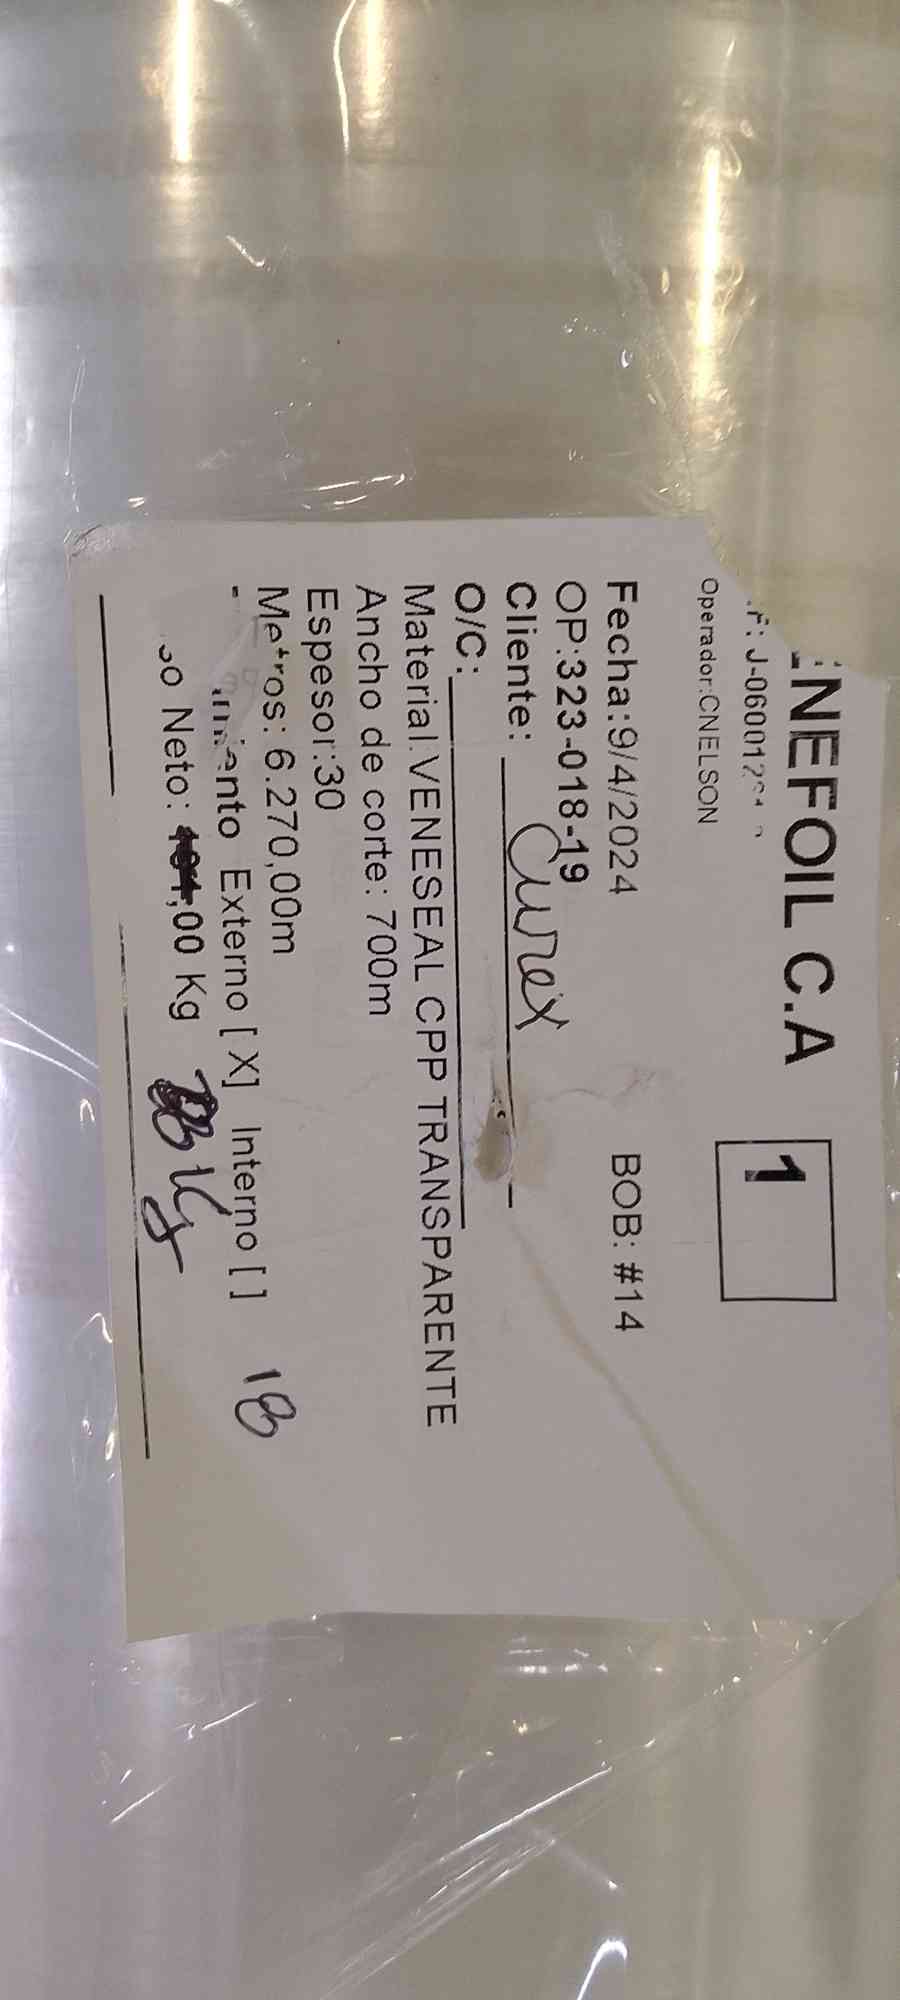 ENEFOIL C.A
1
J-060012
Operador:CNELSON
Fecha:9/4/2024 BOB: #14
OP:323-018-19
Cliente: Curex
O/C:
Material:VENESEAL CPP TRANSPARENTE
Ancho de corte: 700m
Espesor:30
Metros: 6.270,00m
Externo [ X] Interno [ ] 18
Neto: ,00 Kg Kg